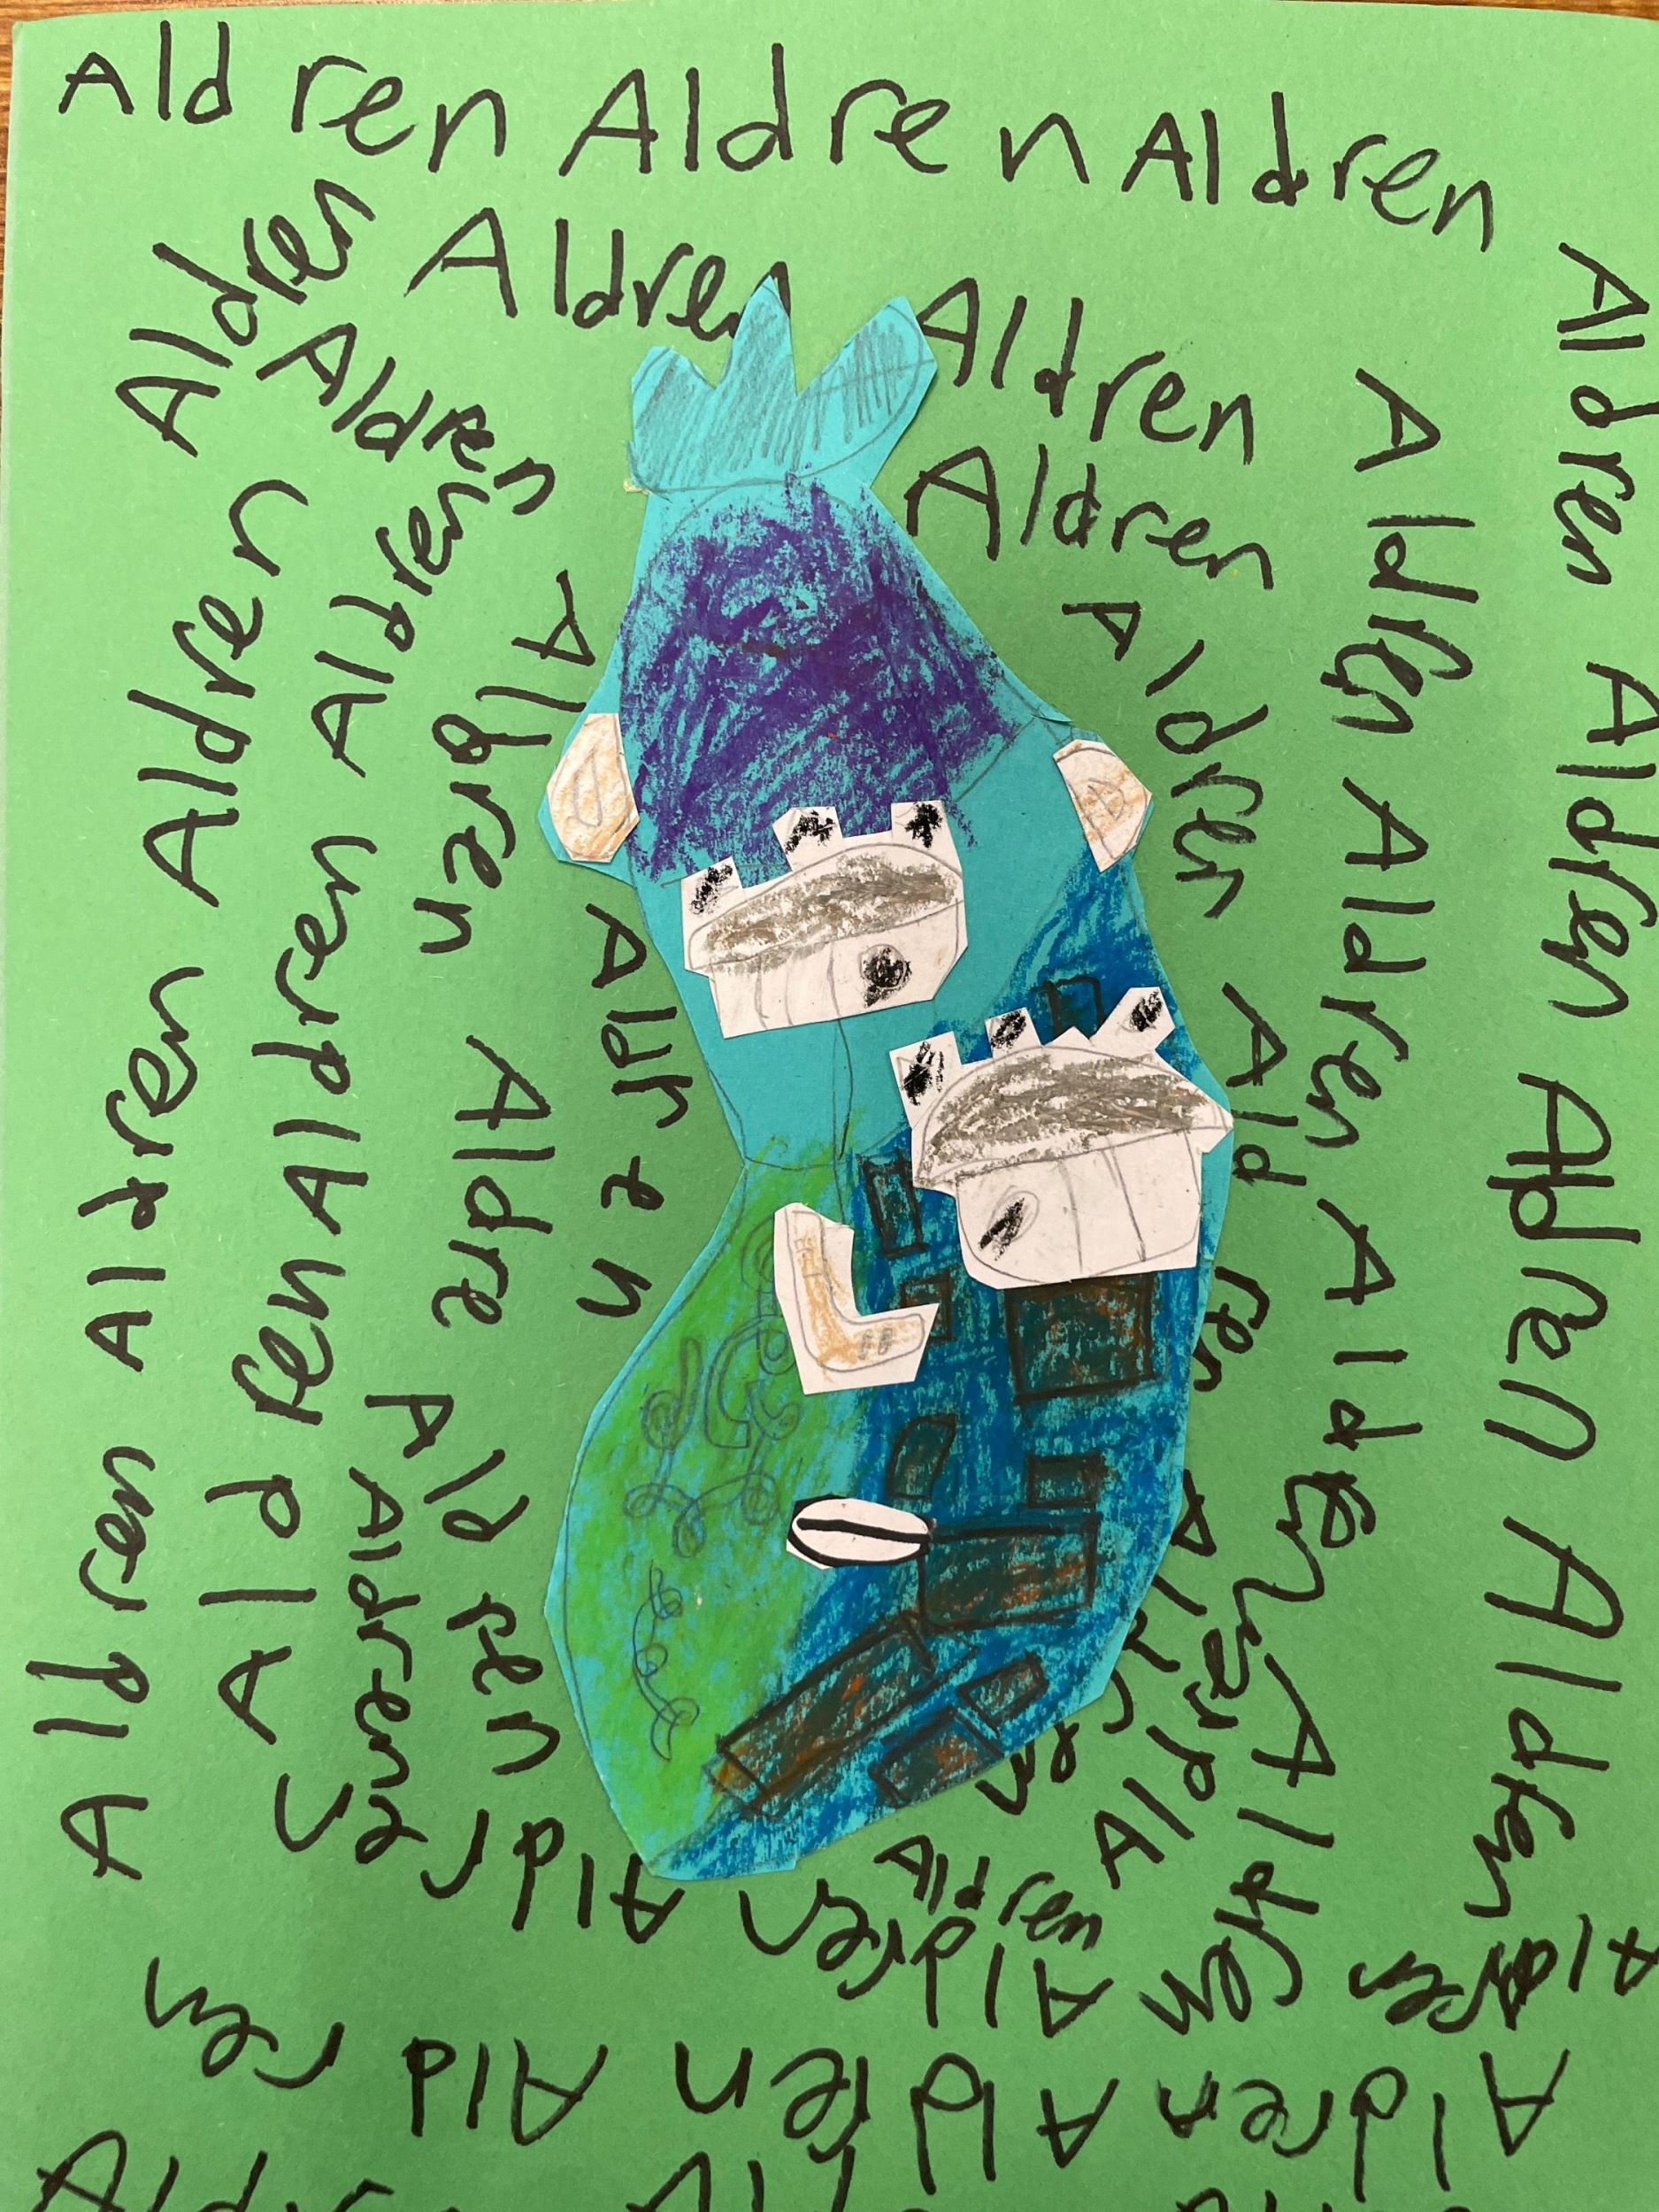 Aldren Aldren Aldren
Aldren Aldren Aldren Aldren Aldren Aldren
Aldren Aldren Aldren Aldren
Aldren Aldren Aldren Aldren
Aldren Aldren Aldren Aldren
Aldren Aldren Aldren Aldren
Aldren Aldren Aldren Aldren
Aldren Aldren Aldren Aldren
Aldren Aldre Aldren
Aldren Aldren Aldren
Aldren Aldren Aldren
Aldren Aldren Aldren Aldren